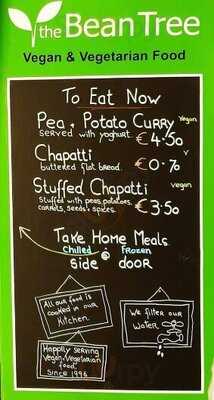 the Bean Tree
Vegan & Vegetarian Food
To Eat Now
Pea + Potato Curry Vegan
served with yoghurt. €4.50
Chapatti V
buttered flat bread. €0.70
Stuffed Chapatti vegan
Stuffed with peas, potatoes,
carrots, seeds + spices. €3.50
Take Home Meals
Chilled Frozen
side door
All our food is
cooked in our
Kitchen.
We filter our
water
Happily serving
Vegan + Vegetarian
food
Since 1996